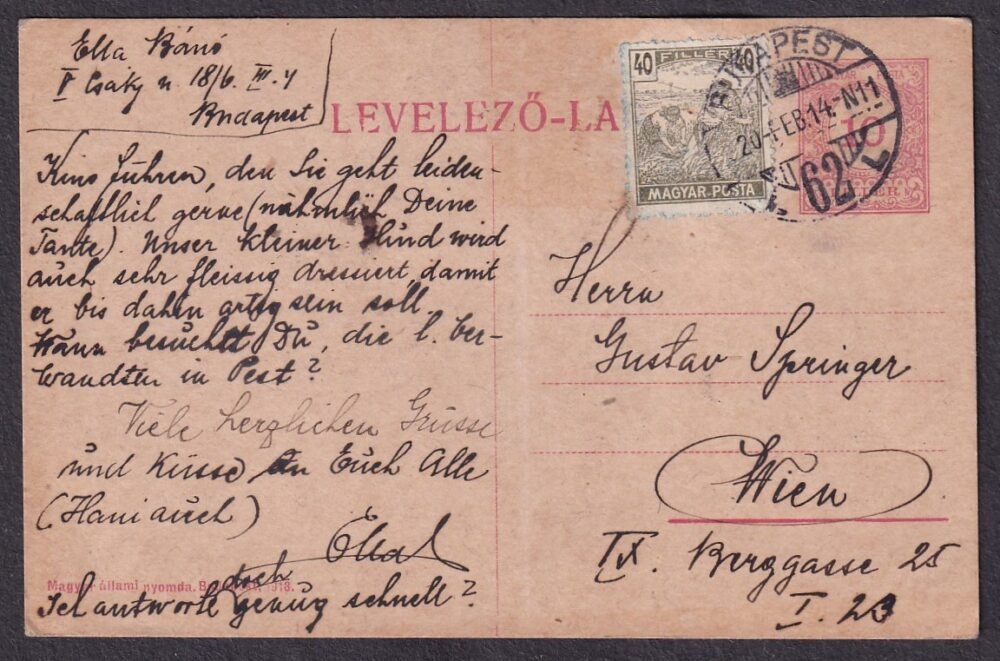 Ella Bánó
V Csáky u. 18/6. III. 4
Budapest
LEVELEZŐ-LA
40 FILLÉR 40
MAGYAR POSTA
BUDAPEST
20 FEB. 14. N11
62
10
Kino führen, den Sie geht leiden-
schaftlich gerne (nähmlich Deine
Tante). Unser kleiner Hund wird
auch sehr fleissig dressiert, damit
er bis dahin artig sein soll.
Wann besuchst Du, die l. Ver-
wandten in Pest?
Viele herzlichen Grüsse
und Küsse an Euch Alle
(Hani auch)
Ella
doch
Ich antworte genug schnell?
Magyar állami nyomda. 1918.
Herrn
Gustav Springer
Wien
IX. Berggasse 25
I. 23